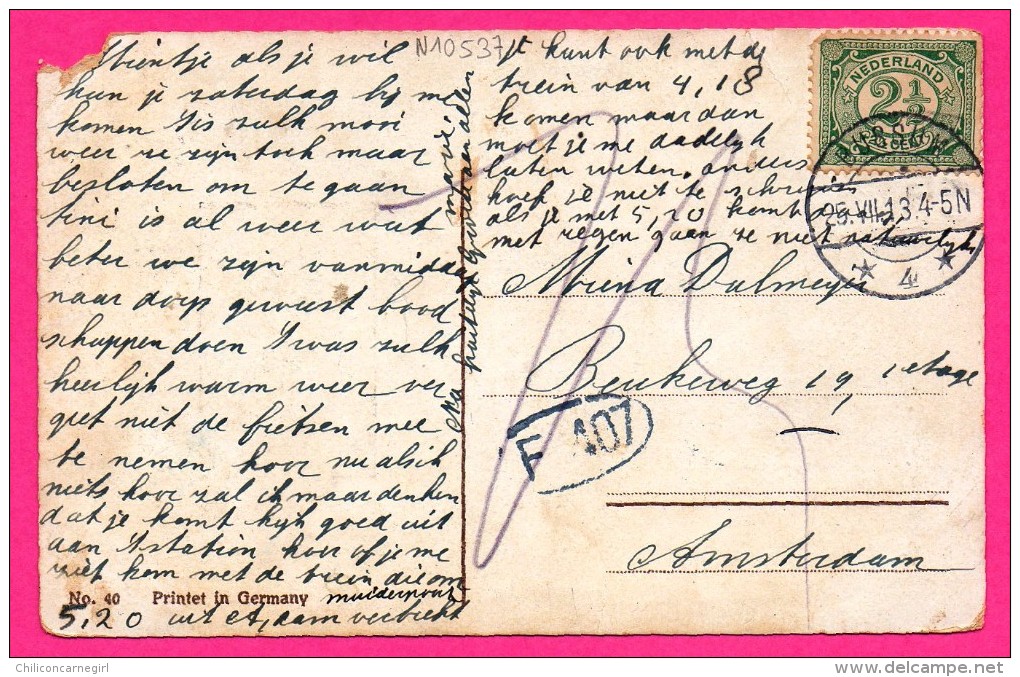 Mientje als je wil
kun je zaturdag bij me
komen 't is zulk mooi
weer ze zijn toch maar
besloten om te gaan
tini is al weer wat
beter we zijn vanmiddag
naar dorp geweest bood
schappen doen 't was zulk
heerlijk warm weer ver
geet niet de fietsen mee
te nemen hoor nu als ik
niets hoor zal ik maar denken
dat je komt kijk goed uit
aan 't station hoor of je me
ziet kom met de trein die om
muiderpoort
5,20 uit A,dam vertrekt
Na hartelijk gegroet van allen
N10537
je kunt ook met de
trein van 4,18
komen maar dan
moet je me dadelijk
laten weten. anders
hoef je niet te schrijven
als je met 5,20 komt
met regen gaan ze niet natuurlijk
Miena Dalmeyer
Beukerweg 19, 1e etage
Amsterdam
NEDERLAND
2½
CENT
25.VII.13 4-5N
4
F 407
No. 40 Printet in Germany
Chiliconcarnegirl
delcampe.net